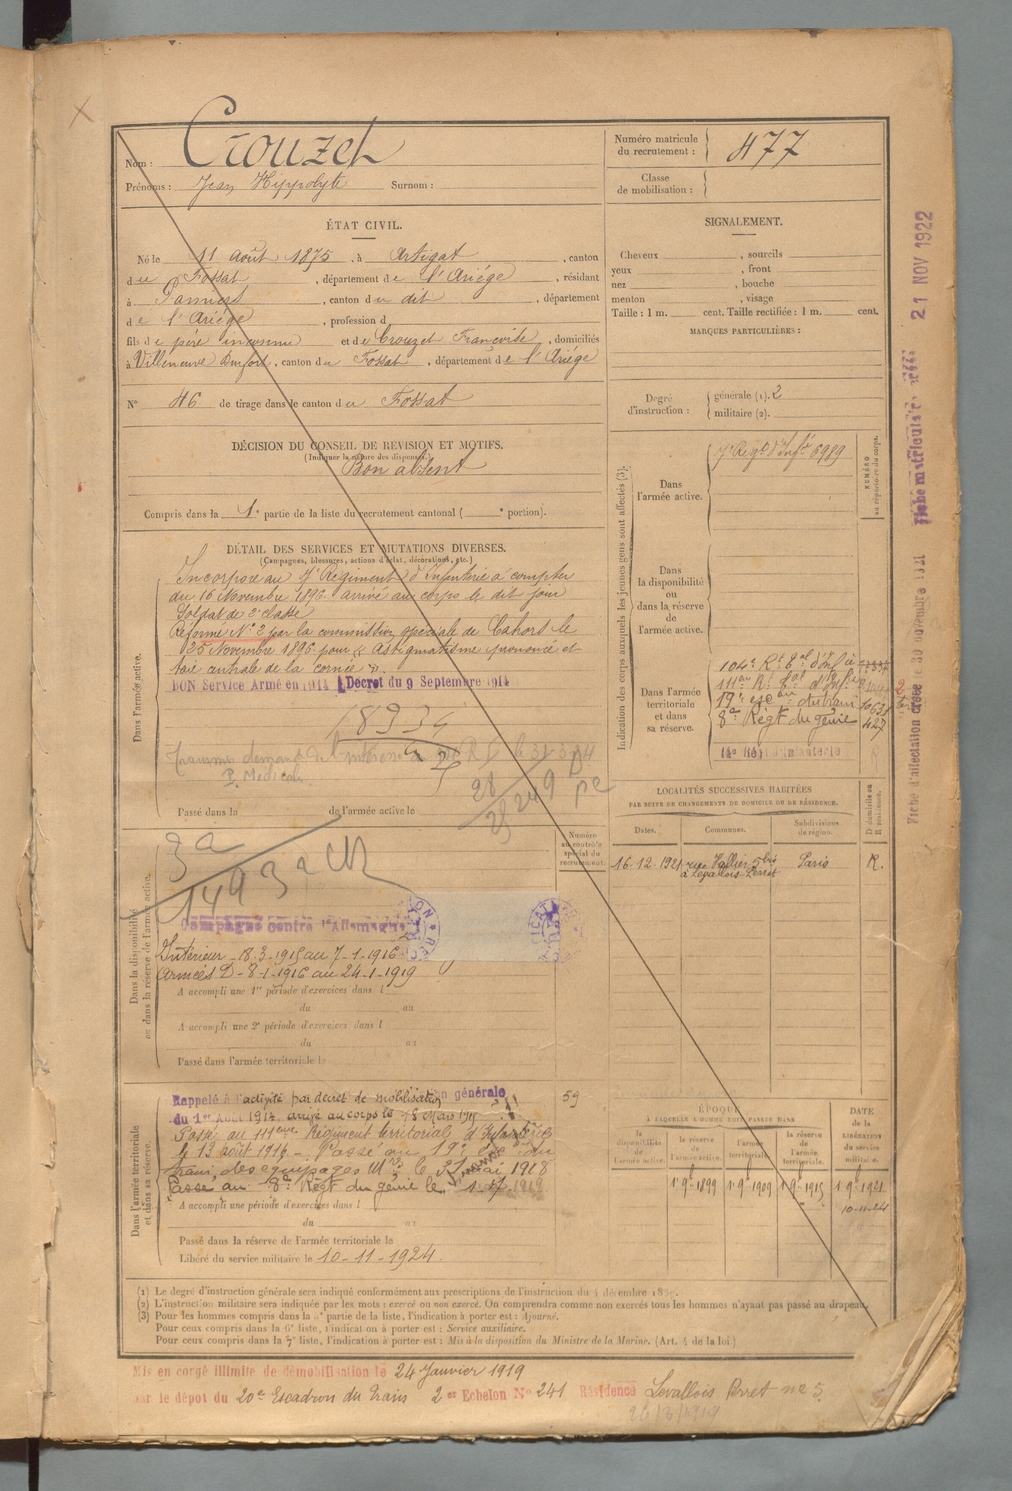 Nom : Crouzet
Prénoms : Jean Hippolyte Surnom :
Numéro matricule du recrutement : 477
Classe de mobilisation :
ÉTAT CIVIL.
Né le 11 août 1875, à Artigat, canton
du Fossat, département de l'Ariége, résidant
à Pamiers, canton du dit, département
de l'Ariége, profession d
fils de père inconnu et de Crouzet Françoise, domiciliés
à Villeneuve Durfort, canton du Fossat, département de l'Ariége
N° 46 de tirage dans le canton du Fossat
DÉCISION DU CONSEIL DE REVISION ET MOTIFS.
(Indiquer la nature des dispenses.)
Bon absent
Compris dans la 1e partie de la liste du recrutement cantonal ( e portion).
SIGNALEMENT.
Cheveux , sourcils
yeux , front
nez , bouche
menton , visage
Taille : 1 m. cent. Taille rectifiée : 1 m. cent.
MARQUES PARTICULIÈRES :
Degré d'instruction :
générale (1). 2
militaire (2).
Indication des corps auxquels les jeunes gens sont affectés (3).
NUMÉRO au répertoire du corps.
Dans l'armée active.
7e Régt d'Infie 6989
Dans la disponibilité ou dans la réserve de l'armée active.
Dans l'armée territoriale et dans sa réserve.
104e Rt Tal d'Infie
111e Rt Tal d'Infie
19e escon du train
8e Régt du génie 427
DÉTAIL DES SERVICES ET MUTATIONS DIVERSES.
(Campagnes, blessures, actions d'éclat, décorations, etc.)
Dans l'armée active.
Incorporé au 7e Régiment d'Infanterie à compter
du 16 Novembre 1896 arrivé au corps le dit jour
Soldat de 2e classe
Réformé N° 2 par la commission spéciale de Cahors le
25 Novembre 1896 pour « Astigmatisme prononcé et
taie centrale de la cornée ».
BON Service Armé en 1914 Décret du 9 Septembre 1914
18934
Passé dans la de l'armée active le
Numéro au contrôle spécial du recrutement.
Dans la disponibilité ou dans la réserve de l'armée active.
Campagne contre l'Allemagne
Intérieur - 18-3-1915 au 7-1-1916
Armées D - 8-1-1916 au 24-1-1919
A accompli une 1re période d'exercices dans l
du au
A accompli une 2e période d'exercices dans l
du au
Passé dans l'armée territoriale le
LOCALITÉS SUCCESSIVES HABITÉES
PAR SUITE DE CHANGEMENTS DE DOMICILE OU DE RÉSIDENCE.
Dates. Communes. Subdivisions de région. D domicile ou R résidence.
16-12-1921 rue Vallier 5 bis Paris R.
à Levallois-Perret
Dans l'armée territoriale et dans sa réserve.
Rappelé à l'activité par décret de mobilisation générale
du 1er Août 1914 arrivé au corps le 18 Mars 1915
59
Passé au 111eme Régiment territorial d'Infanterie
le 13 août 1916 - Passé au 19e esc du
train des équipages Mres le mai 1918
Passé au 8e Régt du génie le
A accompli une période d'exercices dans l
du au
Passé dans la réserve de l'armée territoriale le
Libéré du service militaire le 10-11-1924
ÉPOQUE
À LAQUELLE L'HOMME DOIT PASSER DANS
DATE DE LA LIBÉRATION DU SERVICE MILITAIRE.
la disponibilité de l'armée active. la réserve de l'armée active. l'armée territoriale. la réserve de l'armée territoriale.
1.9bre 1899 1.9bre 1909 1.9bre 1915 1.9bre 1921
10-11-24
(1) Le degré d'instruction générale sera indiqué conformément aux prescriptions de l'instruction du 4 décembre 1889.
(2) L'instruction militaire sera indiquée par les mots : exercé ou non exercé. On comprendra comme non exercés tous les hommes n'ayant pas passé au drapeau.
(3) Pour les hommes compris dans la 2e partie de la liste, l'indication à porter est : Ajourné.
Pour ceux compris dans la 6e liste, l'indication à porter est : Service auxiliaire.
Pour ceux compris dans la 7e liste, l'indication à porter est : Mis à la disposition du Ministre de la Marine. (Art. 4 de la loi.)
Mis en congé illimité de démobilisation le 24 Janvier 1919
par le dépôt du 20e Escadron du Train 2e Echelon N° 241 Résidence Levallois Perret
26/3/1919
Fiche d'affectation créée le 30 novembre 1921
Fiche matricule créée 21 NOV 1922